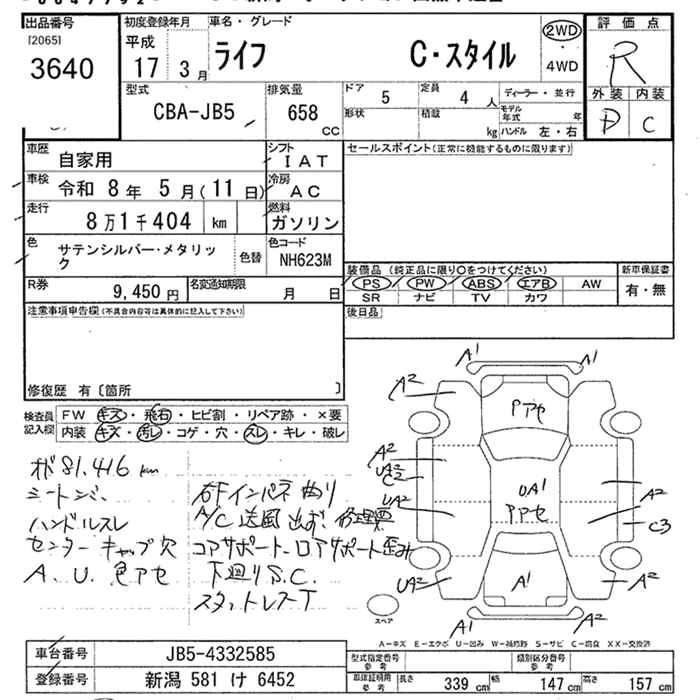 出品番号
[2065]
3640
初度登録年月
平成
17 3月
車名・グレード
ライフ C・スタイル
2WD
・
4WD
評価点
R
外装 内装
D C
型式
CBA-JB5
排気量
658
CC
ドア
5
定員
4 人
形状
積載
kg
ディーラー・並行
モデル年式 年
ハンドル 左・右
車歴
自家用
シフト
IAT
車検
令和 8年 5月(11日)
冷房
AC
走行
8万1千404 km
燃料
ガソリン
色
サテンシルバー・メタリック
色替
色コード
NH623M
R券
9,450 円
名変通知期限
月 日
セールスポイント(正常に機能するものに限ります)
装備品 (純正品に限り○をつけてください)
PS PW ABS エアB AW
SR ナビ TV カワ
新車保証書
有・無
後日品
注意事項申告欄(不具合内容等は具体的に記入して下さい)
修復歴 有〔箇所 〕
検査員記入欄
FW キズ・飛石・ヒビ割・リペア跡・×要
内装 キズ・汚レ・コゲ・穴・スレ・キレ・破レ
81,416 km
ハンドルスレ
センターキャップ穴
A.U.色アセ
右Fインパネ曲り
A/C送風出ず
コアサポート・ロアサポート歪み
下廻りS.C.
スタットレスT
A1
A1
A2
Pアセ
A2
UA2
C2
UA2
UA1
PPアセ
A2
C3
UA2
A1
A2
A1
A2
スペア
A-キズ E-エクボ U-凹み W-補修跡 S-サビ C-腐食 XX-交換済
車台番号
JB5-4332585
登録番号
新潟 581 け 6452
型式指定番号
参考
類別区分番号
参考
車体証明用
参考
長さ 339 cm
幅 147 cm
高さ 157 cm